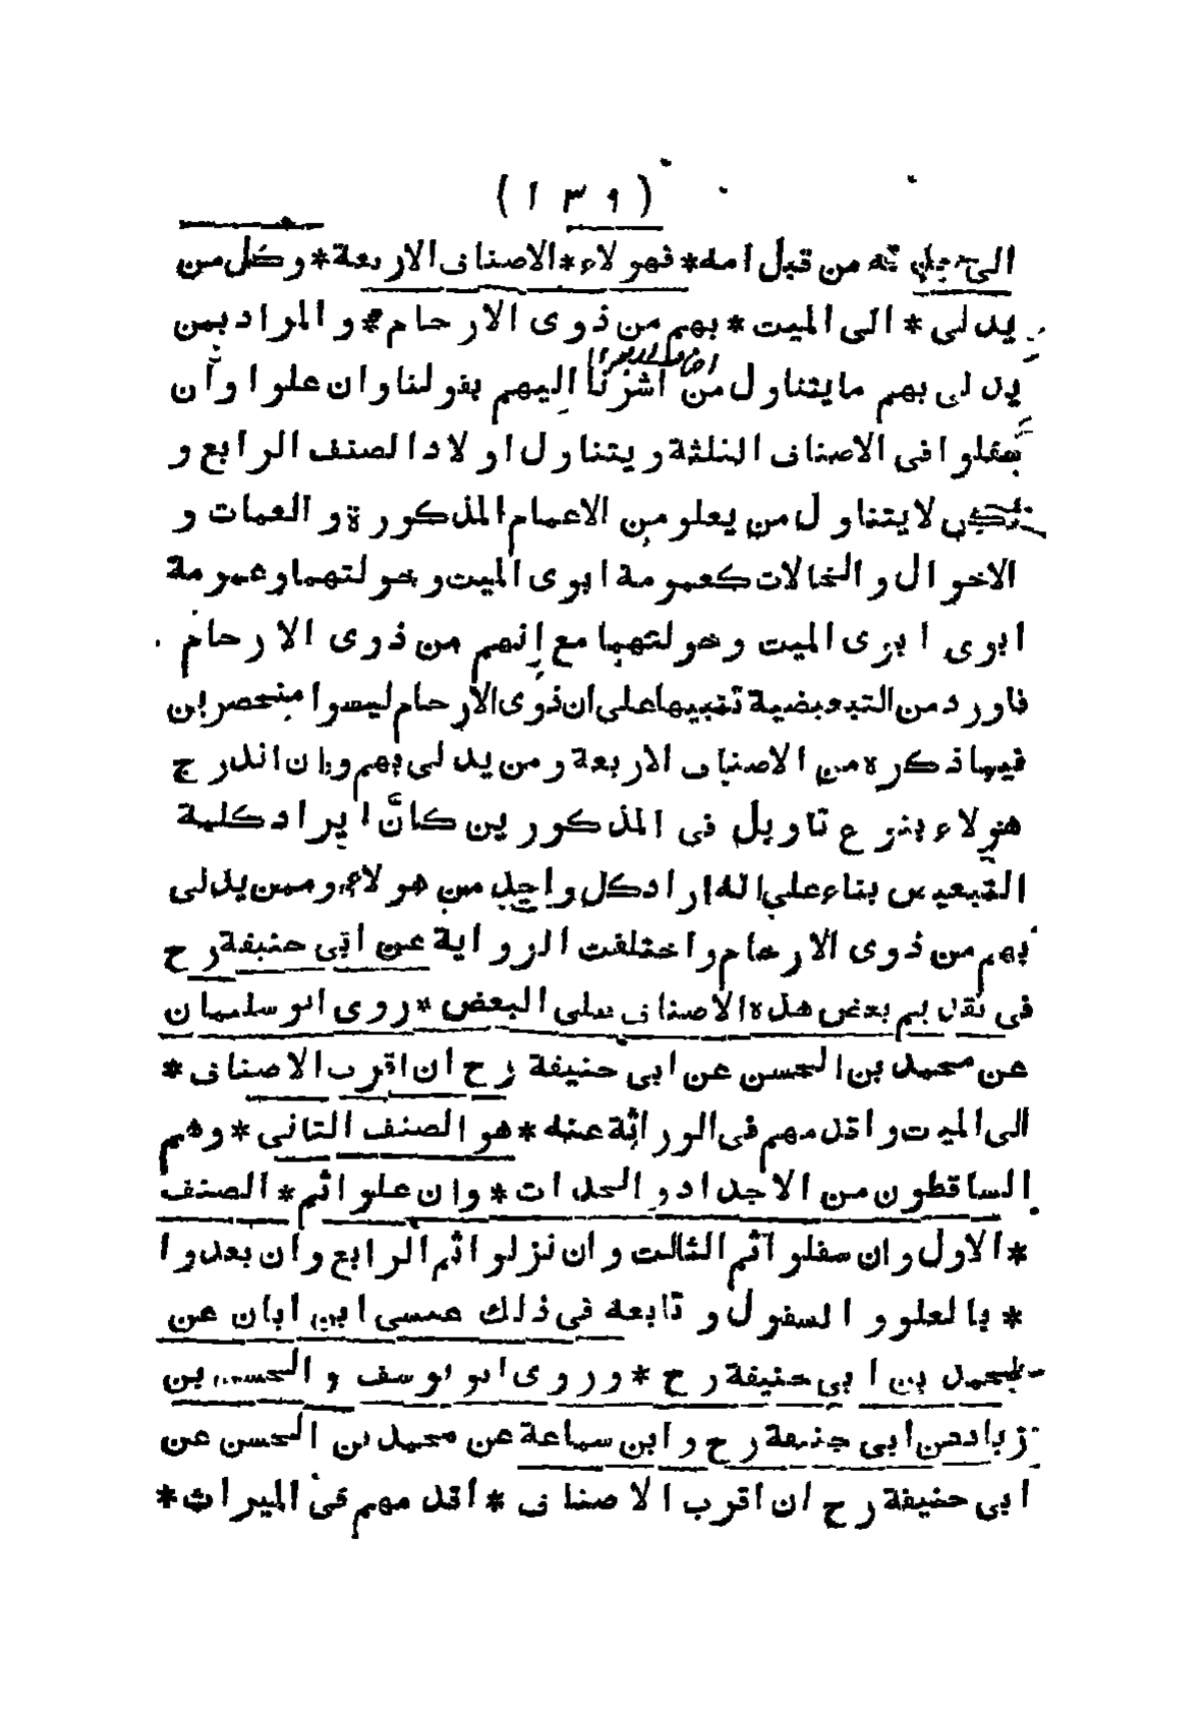 (١٣٩)
الى جدته من قبل امه * فهولاء * الاصناف الاربعة * وكل من
يدلى * الى الميت * بهم من ذوى الارحام * والمراد بمن
يدلى بهم ما يتناول من اشرنا اليهم بقولنا وان علوا وان
سفلوا فى الاصناف الثلثة ويتناول اولاد الصنف الرابع و
لا يتناول من يعلو من الاعمام المذكورة والعمات و
الاخوال والخالات كعمومة ابوى الميت وخولتهما وعمومة
ابوى ابوى الميت وخولتهما مع انهم من ذوى الارحام
فاورد من التبعيضية تنبيها على ان ذوى الارحام ليسوا منحصرين
فيما ذكره من الاصناف الاربعة ومن يدلى بهم وان اندرج
هولاء بنوع تاويل فى المذكورين كانَّ ايراد كلمة
التبعيض بناء على انه اراد كل واحد من هولاء وممن يدلى
بهم من ذوى الارحام واختلفت الرواية عن ابى حنيفة رح
فى تقديم بعض هذه الاصناف على البعض * روى ابو سليمان
عن محمد بن الحسن عن ابى حنيفة رح ان اقرب الاصناف *
الى الميت واقدمهم فى الوراثة عنه * هو الصنف الثانى * وهم
الساقطون من الاجداد والجدات * وان علوا ثم * الصنف
* الاول وان سفلوا ثم الثالث وان نزلوا ثم الرابع وان بعدوا
* بالعلو والسفول وتابعه فى ذلك عيسى ابن ابان عن
محمد بن ابى حنيفة رح * وروى ابو يوسف والحسن بن
زياد عن ابى حنيفة رح وابن سماعة عن محمد بن الحسن عن
ابى حنيفة رح ان اقرب الاصناف * اقدمهم فى الميراث *